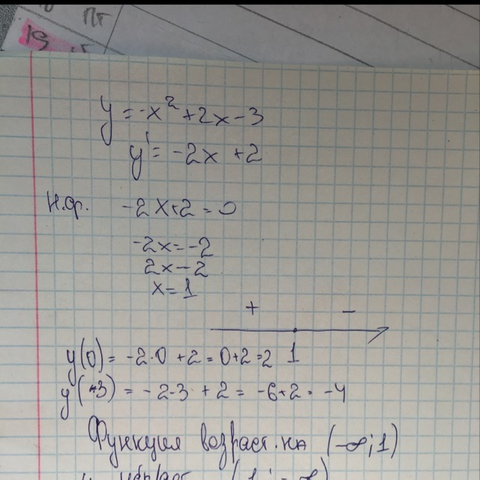 Пт
19
y = -x² + 2x - 3
y' = -2x + 2
н.ф. -2x+2 = 0
-2x = -2
2x - 2
x = 1
+ -
1
y(0) = -2·0 + 2 = 0+2 = 2
y(+3) = -2·3 + 2 = -6+2 = -4
Функция возраст. на (-∞; 1)